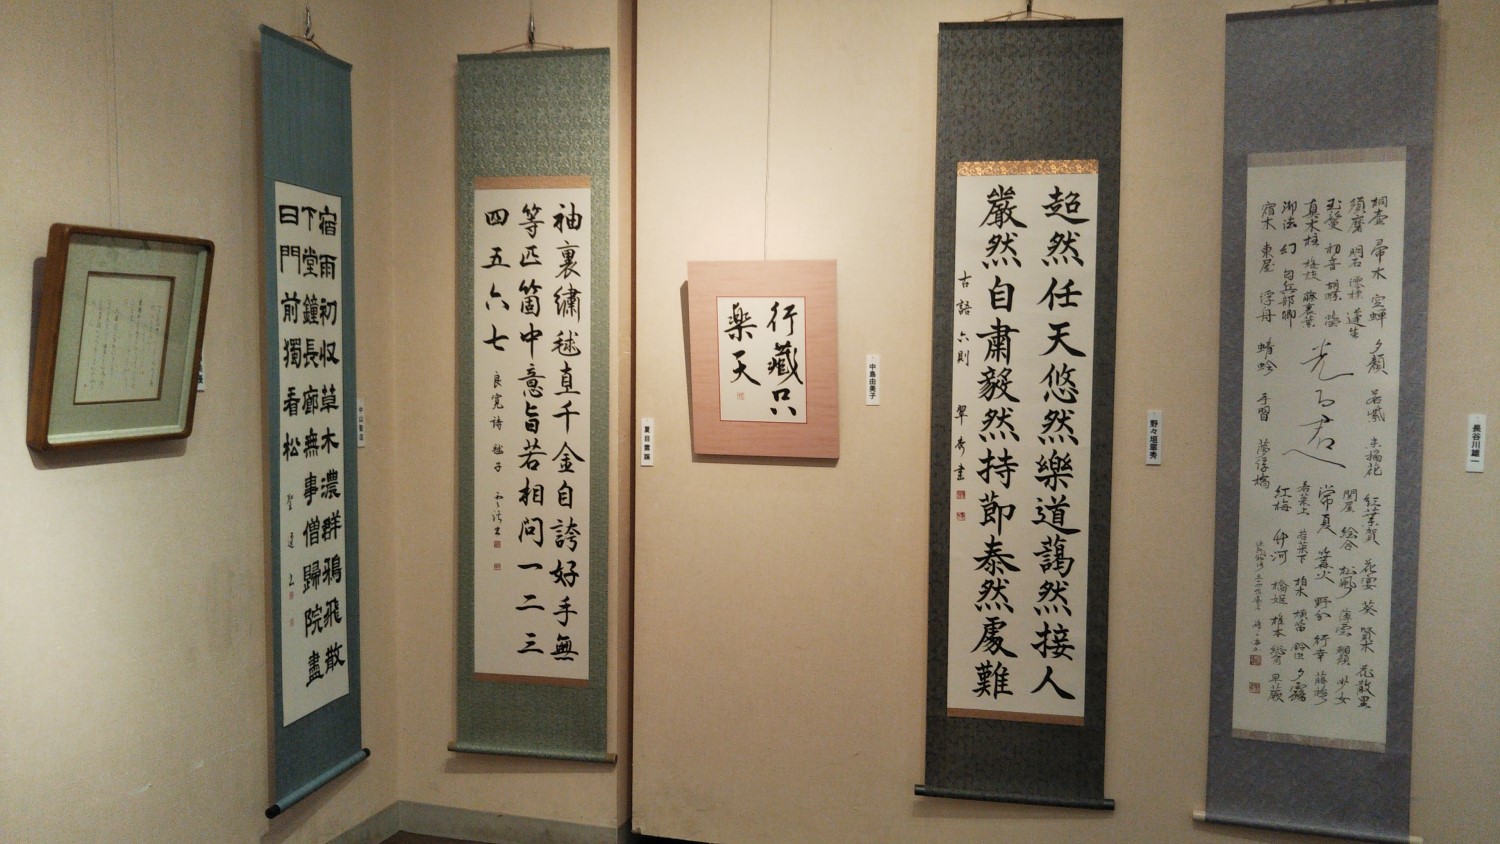 宿雨初収草木濃群鴉飛散
下堂鐘長廊無事僧歸院盡
日門前獨看松
袖裏繍毬直千金自誇好手無
等匹箇中意旨若相問一二三
四五六七
良寛詩 毬子
行藏只
楽天
中島由美子
夏目雲蹊
超然任天悠然樂道藹然接人
嚴然自肅毅然持節泰然處難
古語六則 翠秀書
野々垣翠秀
桐壺 帚木 空蝉 夕顔 若紫 末摘花 紅葉賀 花宴 葵 賢木 花散里
須磨 明石 澪標 蓬生 関屋 絵合 松風 薄雲 朝顔 少女
玉鬘 初音 胡蝶 蛍 常夏 篝火 野分 行幸 藤袴
真木柱 梅枝 藤裏葉 若菜上 若菜下 柏木 横笛 鈴虫 夕霧
御法 幻 匂兵部卿 紅梅 竹河 橋姫 椎本 総角 早蕨
宿木 東屋 浮舟 蜻蛉 手習 夢浮橋
光る君へ
長谷川雄一